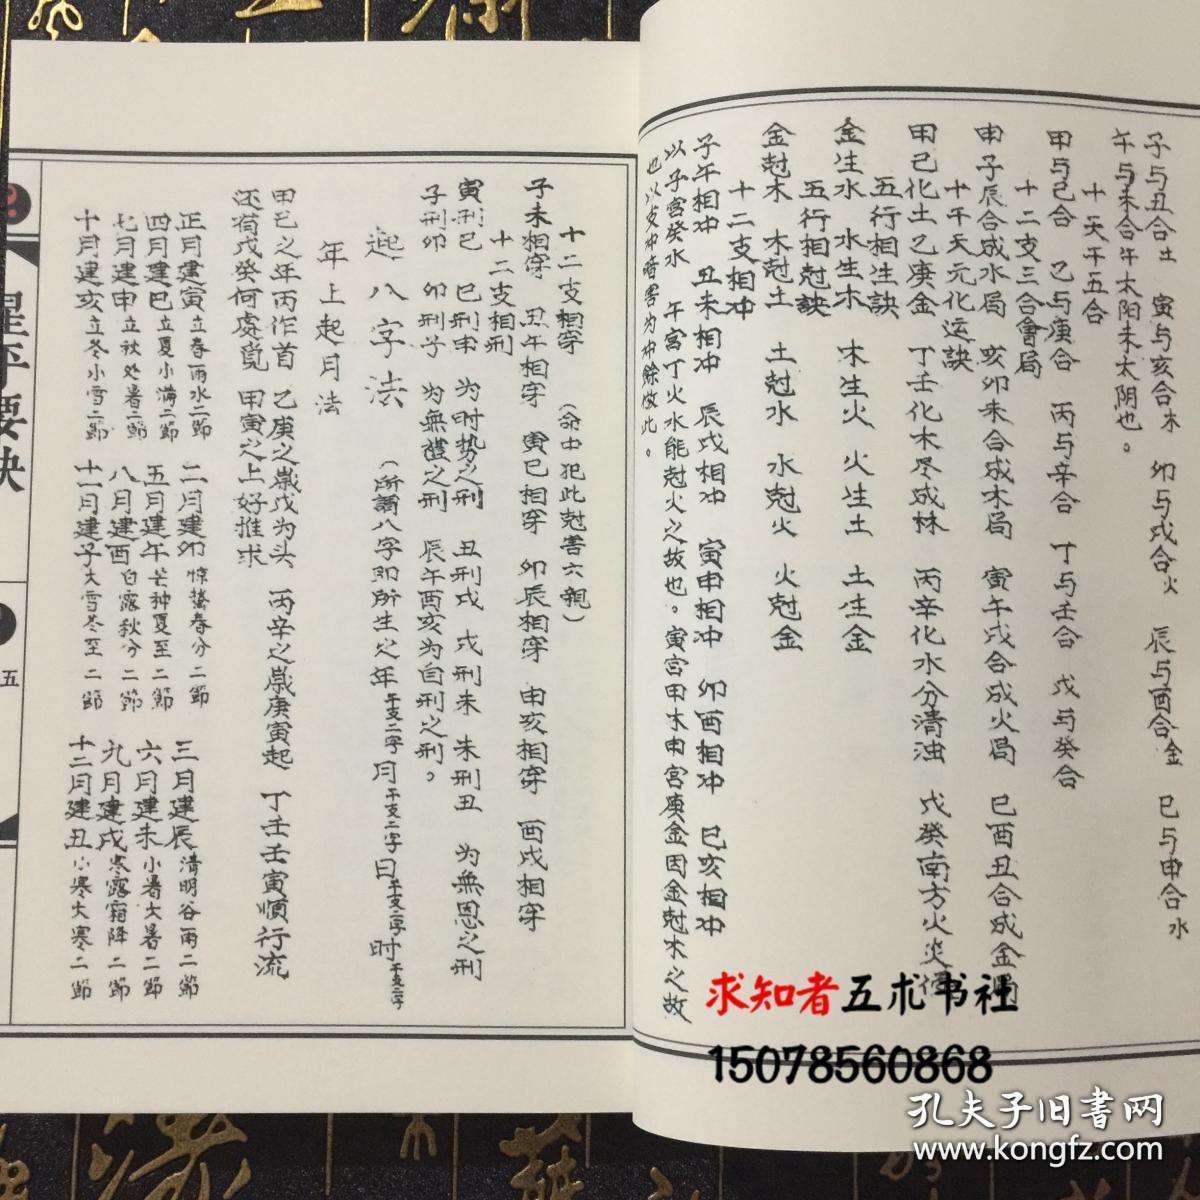 子与丑合土　寅与亥合木　卯与戌合火　辰与酉合金　巳与申合水
午与未合午太阳未太阴也。
十天干五合
甲与己合　乙与庚合　丙与辛合　丁与壬合　戊与癸合
十二支三合會局
申子辰合成水局　亥卯未合成木局　寅午戌合成火局　巳酉丑合成金局
十干天元化运訣
甲己化土乙庚金　丁壬化木尽成林　丙辛化水分清浊　戊癸南方火炎
五行相生訣
金生水　水生木　木生火　火生土　土生金
五行相尅訣
金尅木　木尅土　土尅水　水尅火　火尅金
十二支相冲
子午相冲　丑未相冲　辰戌相冲　寅申相冲　卯酉相冲　巳亥相冲
以子宫癸水　午宫丁火水能尅火之故也。寅宫甲木申宫庚金因金尅木之故
也以支冲暗害为冲餘倣此。
十二支相穿（命中犯此尅害六親）
子未相穿　丑午相穿　寅巳相穿　卯辰相穿　申亥相穿　酉戌相穿
十二支相刑
寅刑巳　巳刑申　为时势之刑　丑刑戌　戌刑未　未刑丑　为無恩之刑
子刑卯　卯刑子　为無禮之刑　辰午酉亥为自刑之刑。
起八字法（所謂八字即所生之年干支二字月干支二字日干支二字时干支二字
年上起月法
甲己之年丙作首　乙庚之歲戊为头　丙辛之歲庚寅起　丁壬壬寅順行流
还有戊癸何處覓　甲寅之上好推求
正月建寅立春雨水二節　二月建卯惊蟄春分二節　三月建辰清明谷雨二節
四月建巳立夏小满二節　五月建午芒种夏至二節　六月建未小暑大暑二節
七月建申立秋处暑二節　八月建酉白露秋分二節　九月建戌寒露霜降二節
十月建亥立冬小雪二節　十一月建子大雪冬至二節　十二月建丑小寒大寒二節
星平要诀
五
求知者五术书社
15078560868
孔夫子旧書网
www.kongfz.com